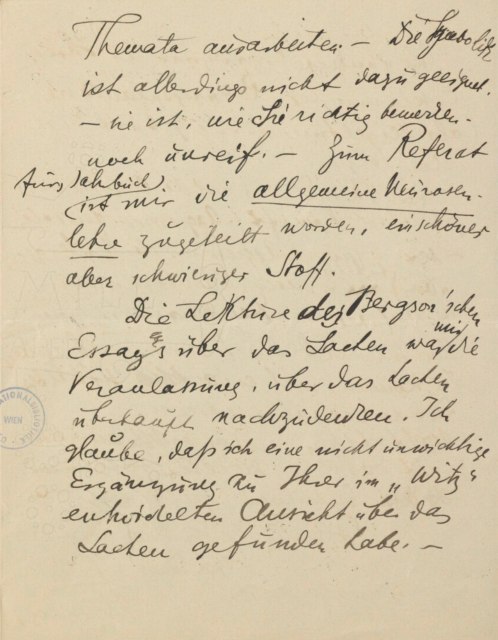 Themata ausarbeiten. – Die Symbolik
ist allerdings nicht dazu geeignet.
– sie ist, wie Sie richtig bemerken.
noch unreif. – Zum Referat
fürs Jahrbuch
ist mir die allgemeine Neurosen-
lehre zugeteilt worden, ein schöner
aber schwieriger Stoff.
Die Lektüre des Bergson'schen
Essays über das Lachen war mir die
Veranlassung, über das Lachen
überhaupt nachzudenken. Ich
glaube, daß ich eine nicht unwichtige
Ergänzung zu Ihrer im „Witz“
entwickelten Ansicht über das
Lachen gefunden habe. –
NATIONALBIBLIOTHEK
WIEN